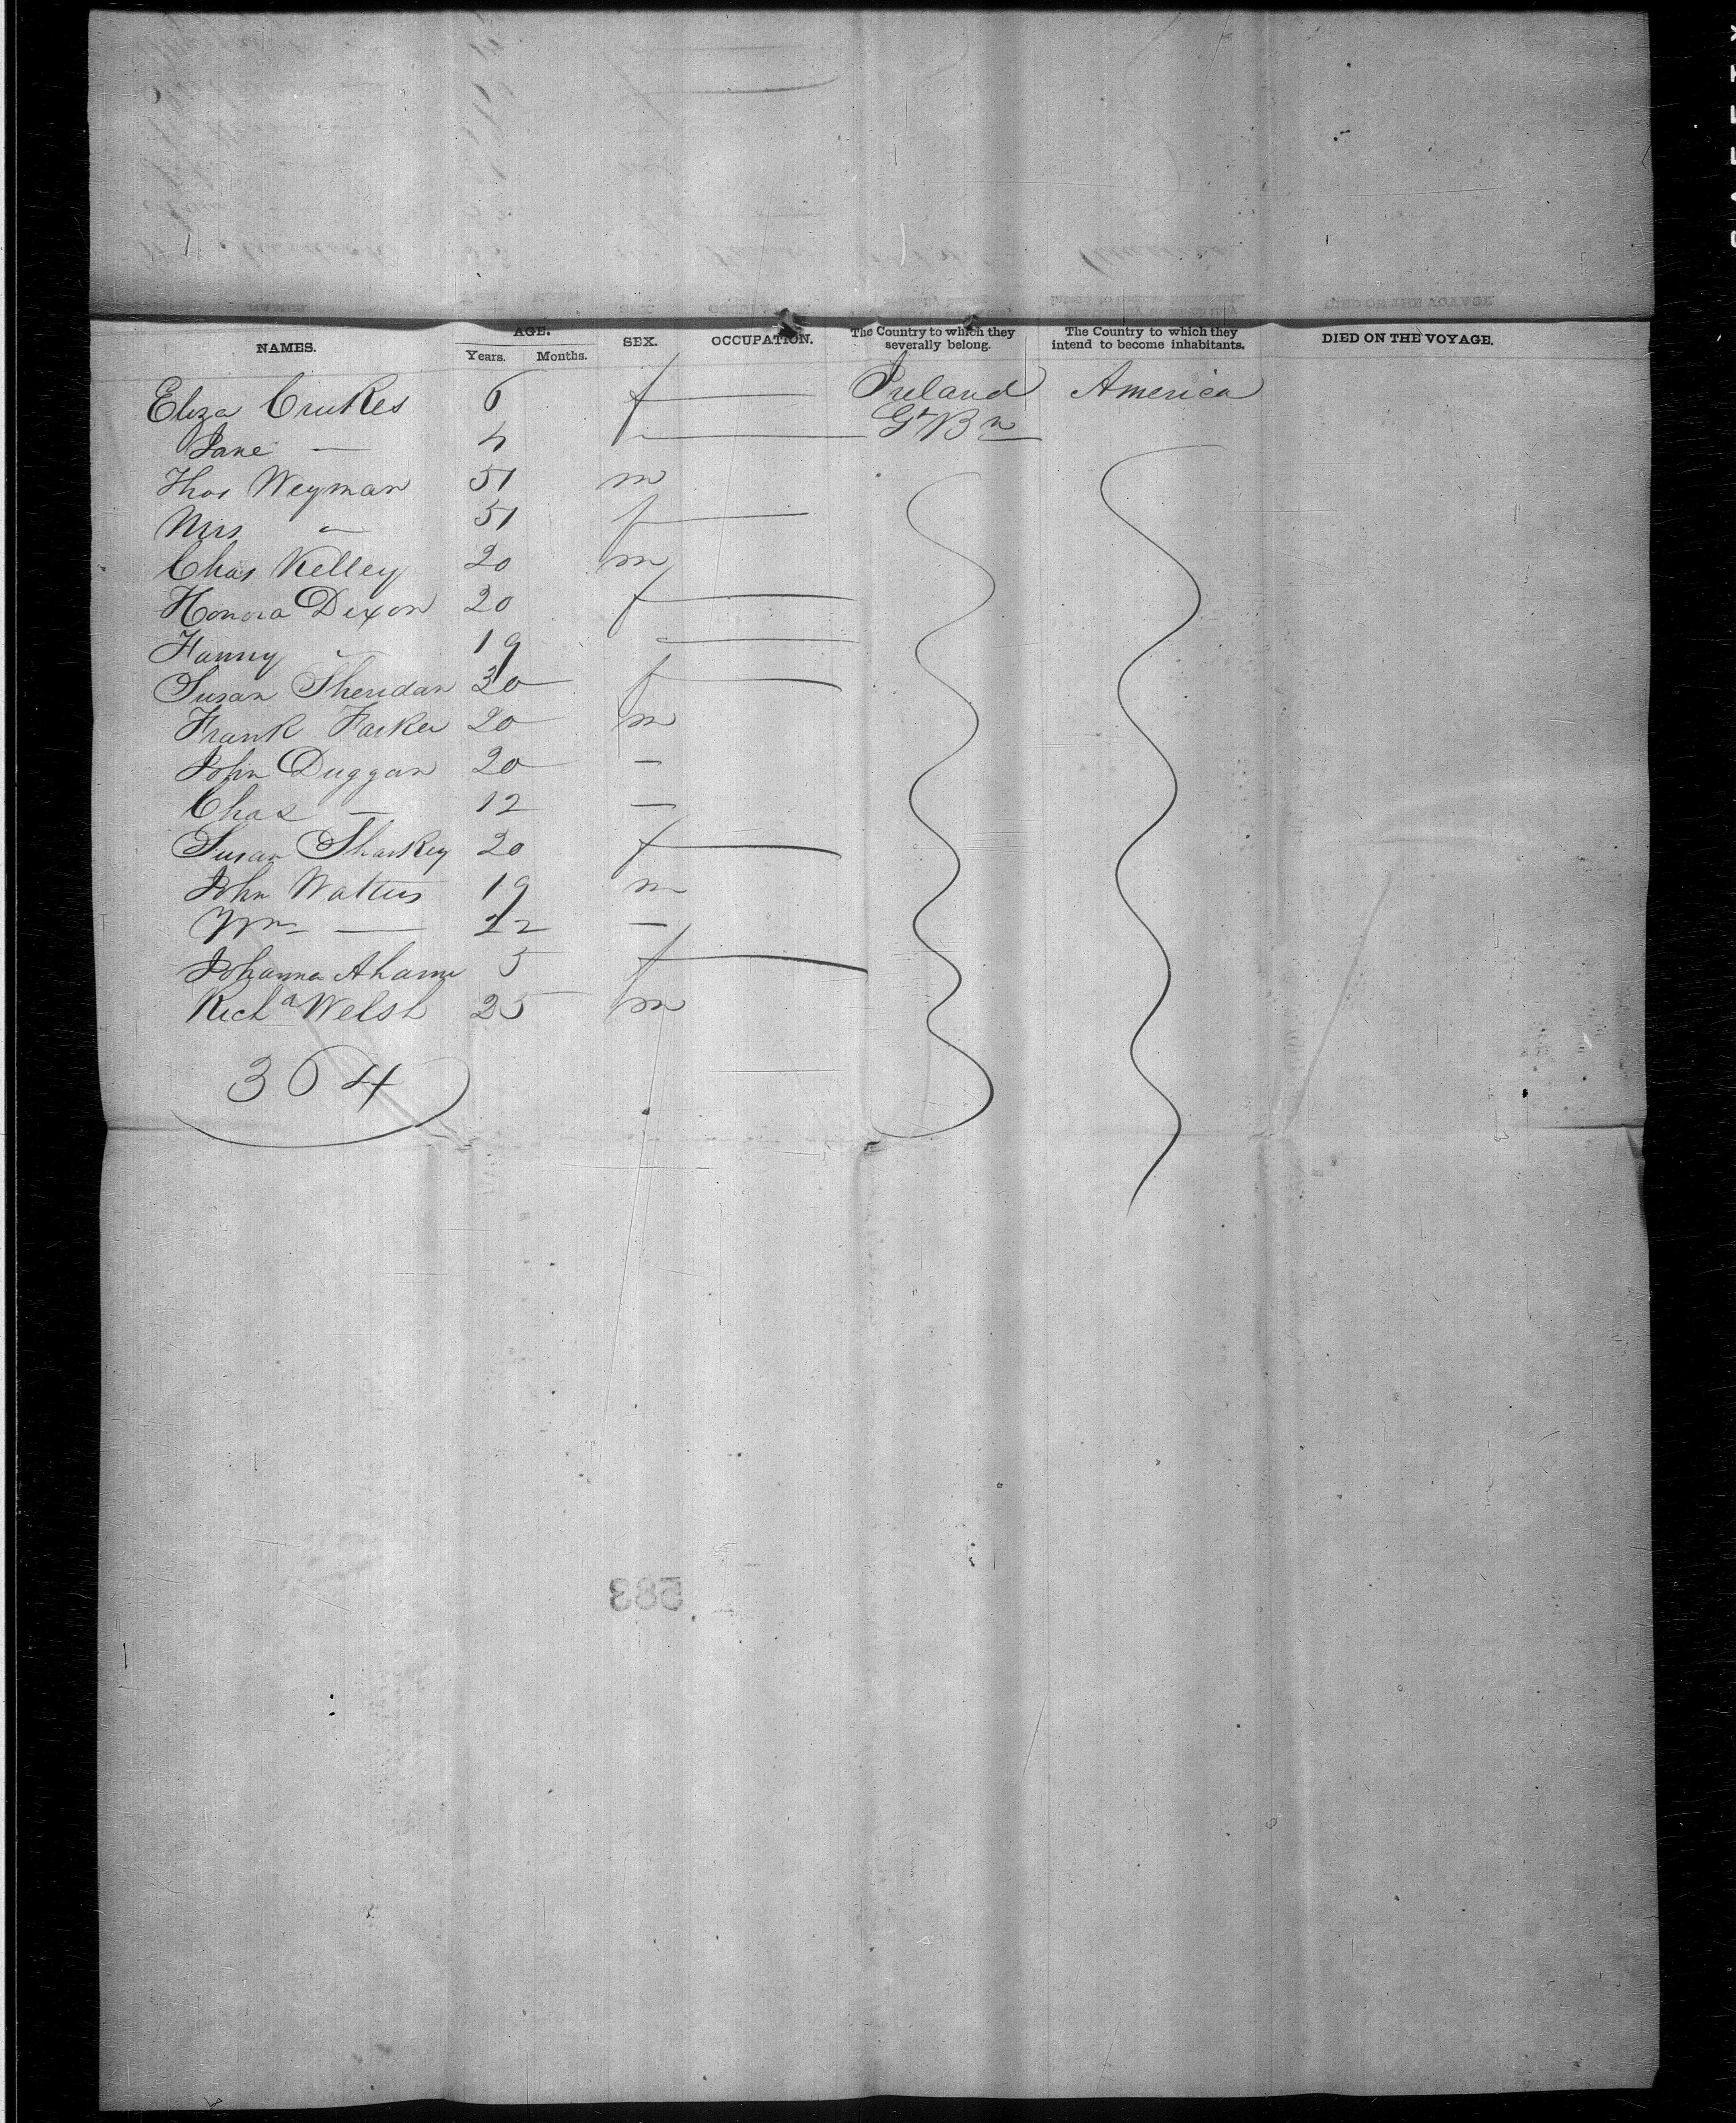 NAMES. AGE. SEX. OCCUPATION. The Country to which they severally belong. The Country to which they intend to become inhabitants. DIED ON THE VOYAGE.
Years. Months.
Eliza Crukes 6 f — Ireland America
Jane — 4 f — Gt Bn
Thos Weyman 51 m
Mrs — 51 f —
Chas Kelley 20 m
Honora Dixon 20 f —
Fanny — 19 —
Susan Sheridan 30 f —
Frank Farker 20 m
John Duggan 20 —
Chas — 12 —
Susan Sharkey 20 f —
John Watters 19 m
Wm — 22 —
Johanna Aharne 5 f —
Richd Welsh 25 m
364
583